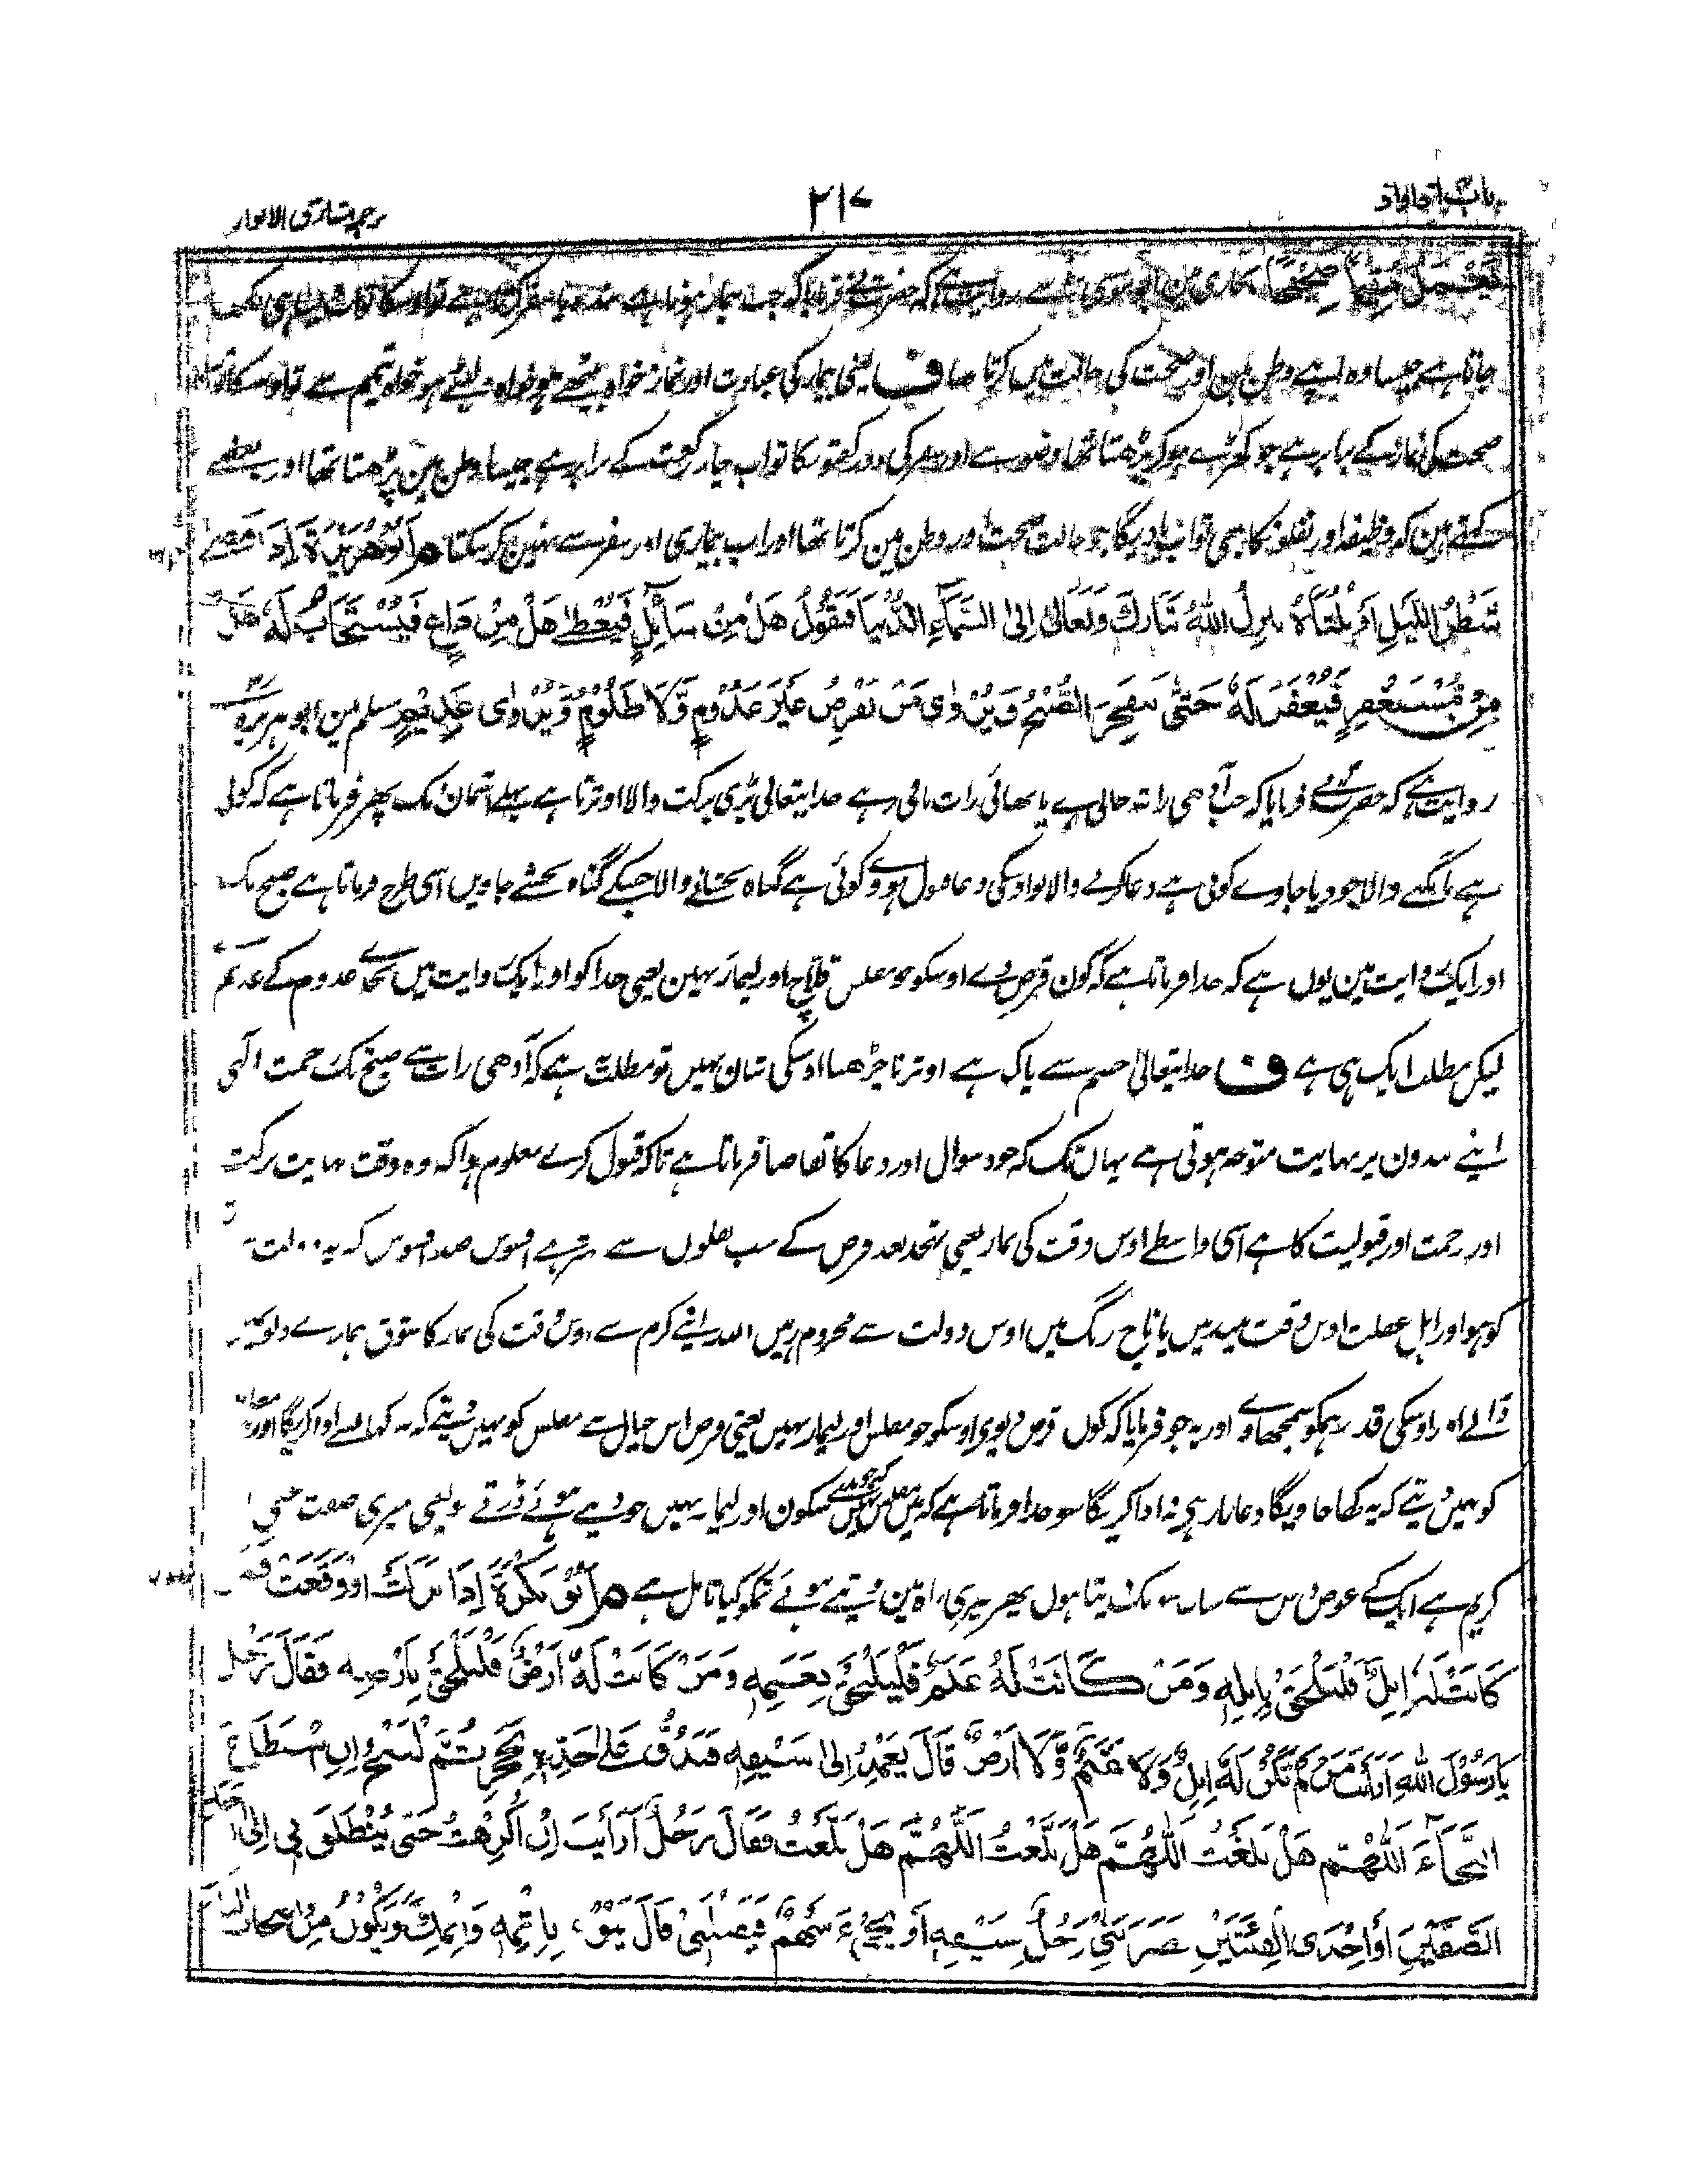 ترجمہ مشارق الانوار
۲۱۷
يَعْمَلُ مُقِيمًا صَحِيحًا بخاری میں ابو موسی سے روایت ہے کہ حضرت نے فرمایا کہ جب بیمار ہوتا ہے بندہ یا سفر کرتا ہے تو اوسکا ویسا ہی لکھا
جاتا ہے جیسا وہ اپنے وطن مین اور صحت کی حالت میں کرتا تھا ف یعنی بیمار کی عبادت اور نماز خواہ بیٹھے ہو خواہ لیٹے ہو خواہ تیمم سے ہو
صحت کی نماز کے برابر ہے جو کھڑے ہو کر پڑھتا تھا وضو سے اور سفر کی دو رکعتوں کا ثواب چار رکعت کے برابر ہے جیسا وطن مین پڑھتا تھا اور بعضے
کہتے ہین کہ وظیفہ اور نفلونکا بھی ثواب پاویگا جو حالت صحت اور وطن مین کرتا تھا اور اب بیماری اور سفر سے نہین کر سکتا م اَبُو هُرَيْرَةَ اِذَا مَضٰى
شَطْرُ اللَّيْلِ اَوْ ثُلُثَاهُ يَنْزِلُ اللهُ تَبَارَكَ وَتَعَالٰى اِلَى السَّمَآءِ الدُّنْيَا فَيَقُوْلُ هَلْ مِنْ سَآئِلٍ فَيُعْطٰى هَلْ مِنْ دَاعٍ فَيُسْتَجَابُ لَهٗ هَلْ
مِنْ مُسْتَغْفِرٍ فَيُغْفَرُ لَهٗ حَتّٰى يَنْفَجِرَ الصُّبْحُ وَيُرْوٰى مَنْ يُقْرِضُ غَيْرَ عَدُوْمٍ وَّلَا ظَلُوْمٍ وَّيُرْوٰى عَدِيْمٍ مسلم مین ابو ہریرہ
روایت ہے کہ حضرت نے فرمایا کہ جب آدھی رات جاتی ہے یا تہائی رات باقی رہے خدایتعالی بڑی برکت والا اوترتا ہے پہلے آسمان تک پھر فرماتا ہے کہ کوئی
ہے مانگنے والا جو دیا جاوے کوئی ہے دعا کرنے والا اوسکی دعا قبول ہووے کوئی ہے گناہ بخشانے والا جسکے گناہ بخشے جاویں اسی طرح فرماتا ہے صبح تک
اور ایک روایت مین یوں ہے کہ خدا فرماتا ہے کہ کون قرض دے اوسکو جو مفلس قلاچ اور لیمار نہین یعنی خدا کو اور ایک روایت میں بجاے عدوم کے عدیم
لیکن مطلب ایک ہی ہے ف خدایتعالیٰ جسم سے پاک ہے اوترنا چڑھنا اوسکی شان نہیں تو مطلب یہ ہے کہ آدھی رات سے صبح تک رحمت الٰہی
اپنے بندون پر نہایت متوجہ ہوتی ہے یہاں تک کہ خود سوال اور دعا کا تقاضا فرماتا ہے تاکہ قبول کرے معلوم ہوا کہ وہ وقت نہایت برکت
اور رحمت اور قبولیت کا ہے اسی واسطے اوس وقت کی نماز یعنی تہجد بعد فرض کے سب نفلوں سے بہتر ہے افسوس صد افسوس کہ یہ دولت
کو ہو اور اہل غفلت اوس وقت نیند میں یا ناچ رنگ میں اوس دولت سے محروم رہیں اللہ اپنے کرم سے اوس وقت کی نماز کا شوق ہمارے دلونمین
ڈالے اور اوسکی قدر ہمکو سمجھاوے اور یہ جو فرمایا کہ کون قرض دیوے اوسکو جو مفلس اور لیمار نہیں یعنی قرض اس خیال سے مفلس کو نہیں دیتے کہ یہ کہاں سے ادا کریگا اور
کو نہیں دیتے کہ یہ کھا جاویگا دغاباز ہے نہ ادا کریگا سو خدا فرماتا ہے کہ میں مفلس نہیں ہون اور لیمار نہیں جو دیتے ہوئے ڈرتے ہو یعنی میری صفت غنی
کریم ہے ایک کے عوض دس سے سات سو تک دیتا ہوں پھر میری راہ مین دیتے ہوئے تمکو کیا تامل ہے م اَبُوْ بَكْرَةَ اِذَا نَزَلَتْ اَوْ وَقَعَتْ
كَانَتْ لَهٗ اِبِلٌ فَلْيَلْحَقْ بِاِبِلِهٖ وَمَنْ كَانَتْ لَهٗ غَنَمٌ فَلْيَلْحَقْ بِغَنَمِهٖ وَمَنْ كَانَتْ لَهٗ اَرْضٌ فَلْيَلْحَقْ بِاَرْضِهٖ فَقَالَ رَجُلٌ
يَا رَسُوْلَ اللهِ اَرَاَيْتَ مَنْ لَمْ تَكُنْ لَهٗ اِبِلٌ وَّلَا غَنَمٌ وَّلَا اَرْضٌ قَالَ يَعْمِدُ اِلٰى سَيْفِهٖ فَيَدُقُّ عَلٰى حَدِّهٖ بِحَجَرٍ ثُمَّ لْيَنْجُ اِنِ اسْتَطَاعَ
النَّجَآءَ اَللّٰهُمَّ هَلْ بَلَّغْتُ اَللّٰهُمَّ هَلْ بَلَّغْتُ اَللّٰهُمَّ هَلْ بَلَّغْتُ فَقَالَ رَجُلٌ اَرَاَيْتَ اِنْ اُكْرِهْتُ حَتّٰى يُنْطَلَقَ بِىْ اِلٰى اَحَدِ
الصَّفَّيْنِ اَوْ اِحْدَى الْفِئَتَيْنِ فَضَرَبَنِىْ رَجُلٌ بِسَيْفِهٖ اَوْ يَجِيْءُ سَهْمٌ فَيَقْتُلُنِىْ قَالَ يَبُوْءُ بِاِثْمِهٖ وَاِثْمِكَ وَيَكُوْنُ مِنْ اَصْحَابِ النَّارِ